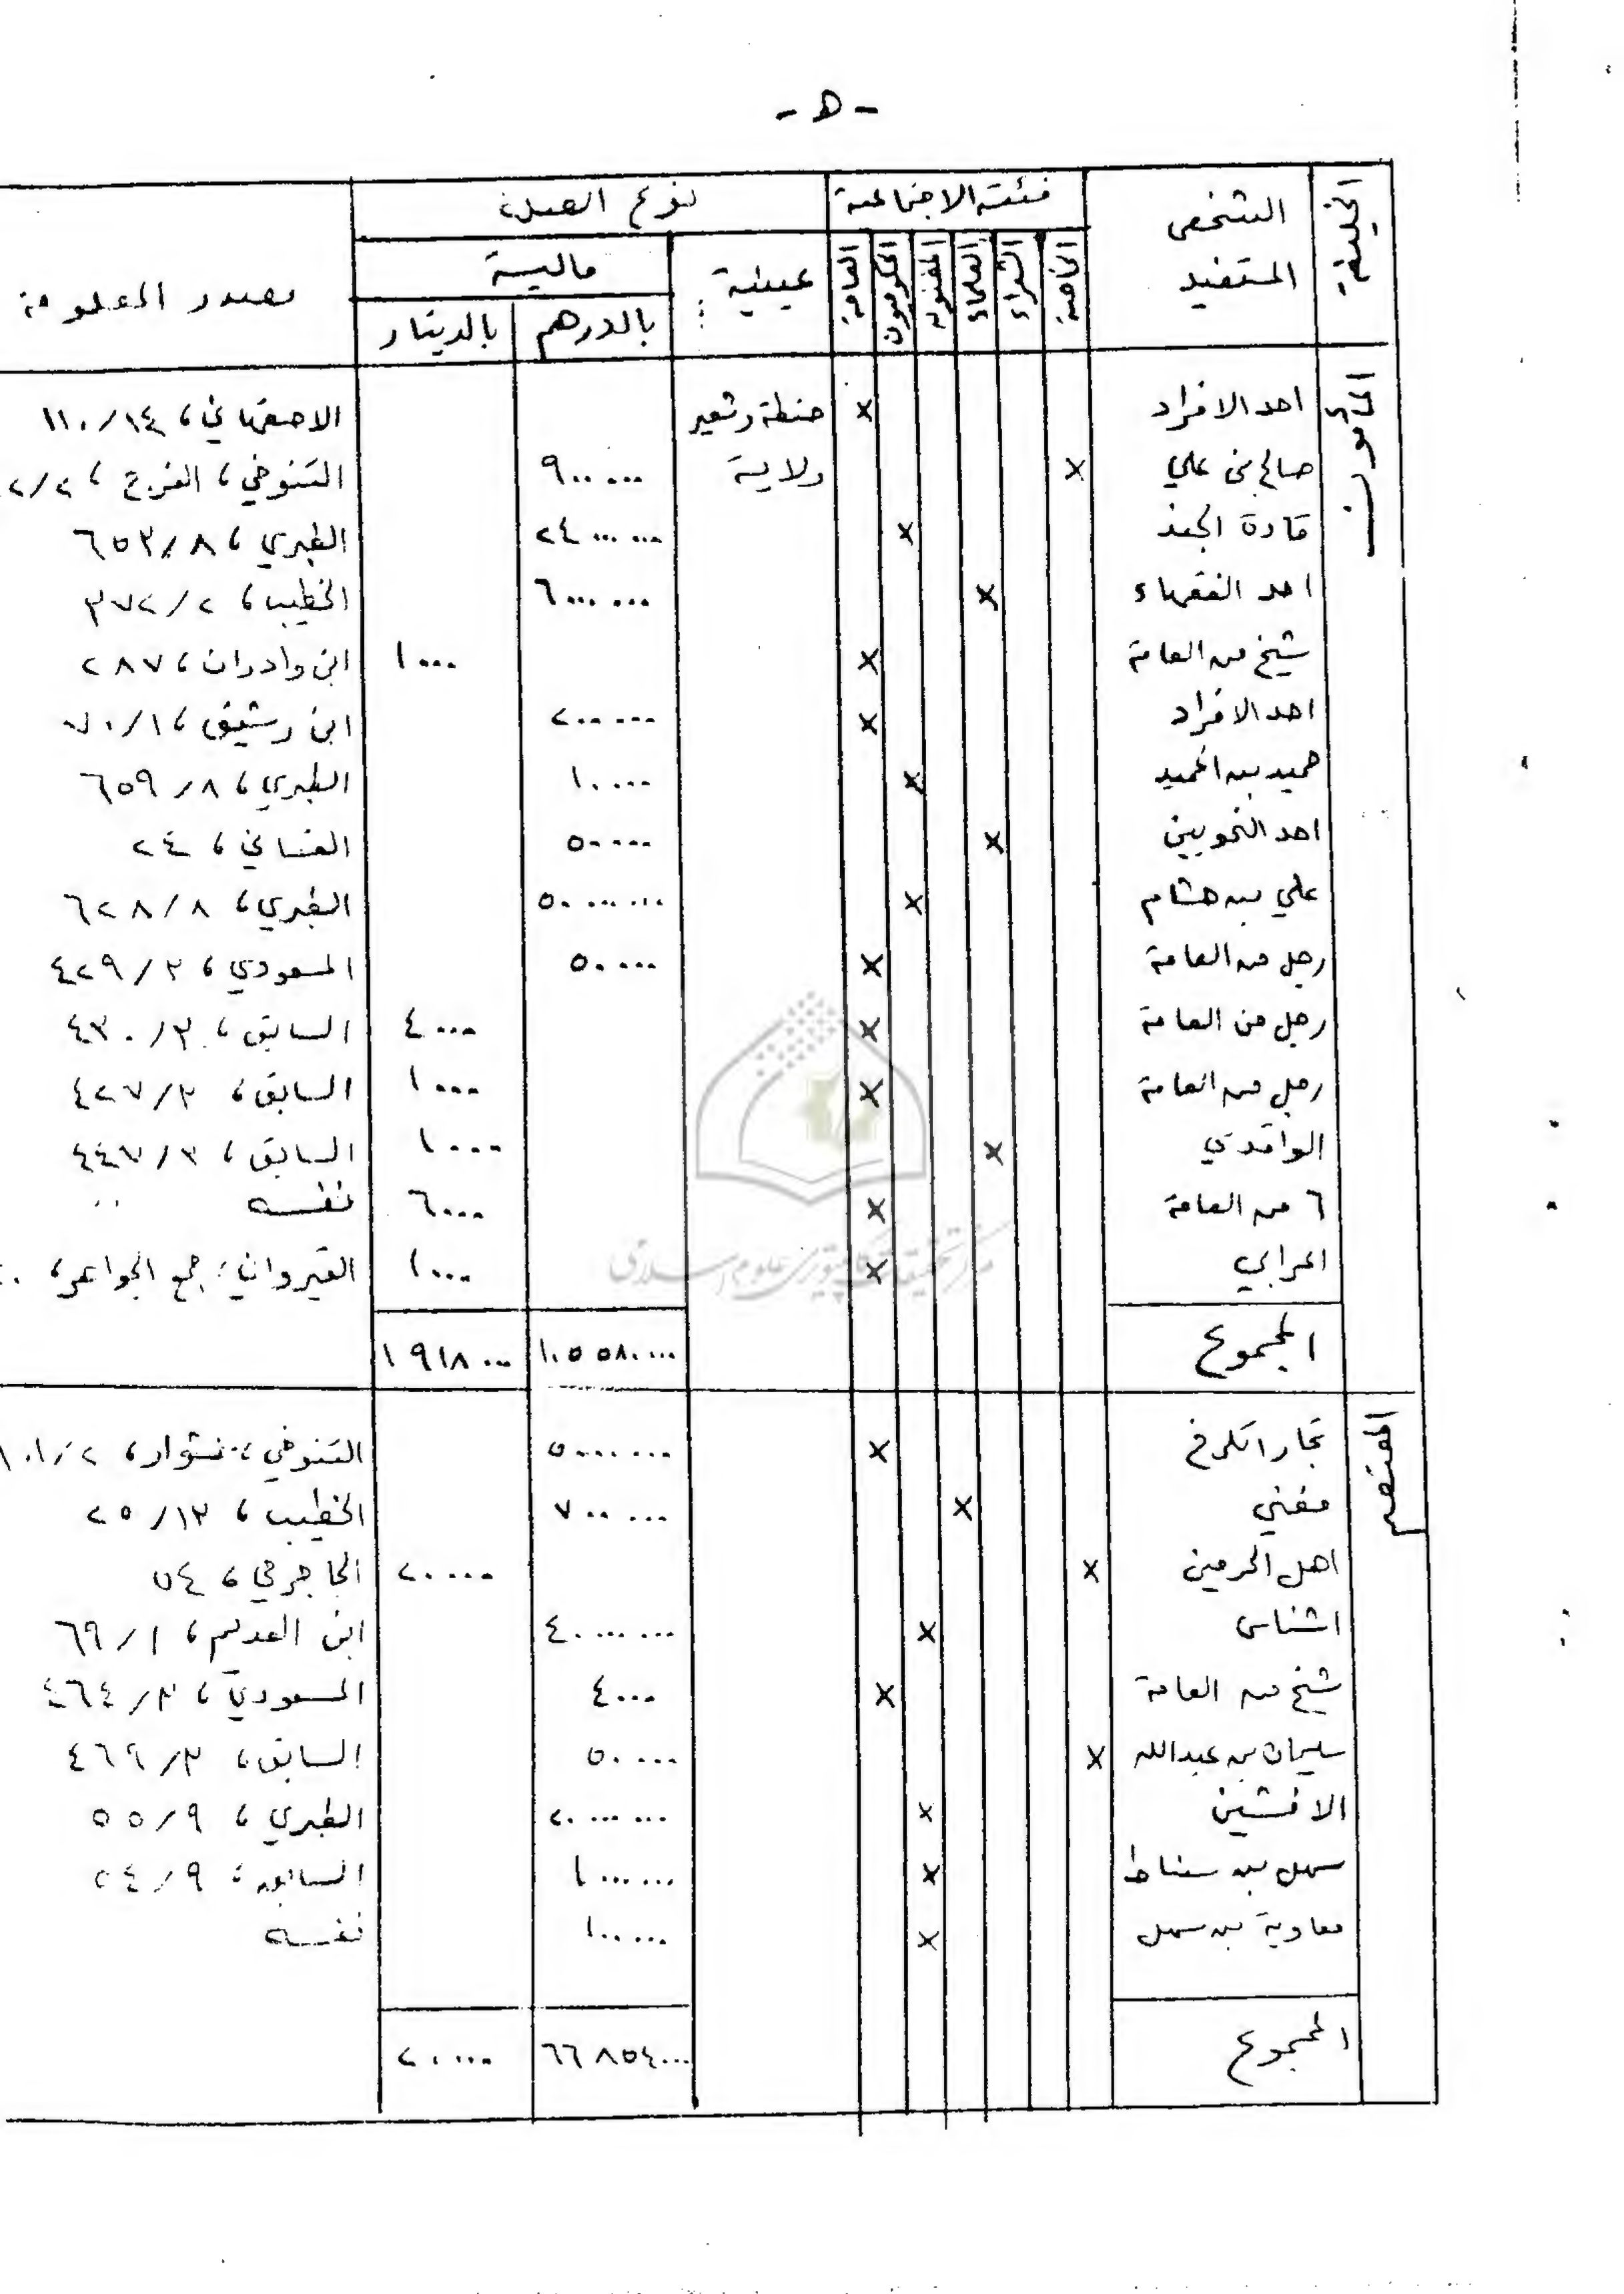 - ه -
الخليفة | الشخص المستفيد | فئته الاجتماعية | نوع الصلة | مصدر المعلومة
الخاصة | الشعراء | العلماء | المغنون | العسكريون | العامة | عينية | مالية
بالدرهم | بالدينار
المأمون
احد الافراد | × | حنطة وشعير | الاصفهاني، ١١٠/١٤
صالح بن علي | × | ولاية | ٩٠٠٠٠٠ | التنوخي، الفرج، ٢/
قادة الجند | × | ٢٤٠٠٠٠٠٠ | الطبري، ٦٥٣/٨
احد الفقهاء | × | ٦٠٠٠٠٠٠ | الخطيب، ٣٧٢/٢
شيخ من العامة | × | ١٠٠٠ | ابن وادران، ٢٨٧
احد الافراد | × | ٢٠٠٠٠٠ | ابن رشيق، ٧٠/١
حميد بن الحميد | × | ١٠٠٠٠ | الطبري، ٦٥٩/٨
احد النحويين | × | ٥٠٠٠٠ | الغساني، ٢٤
علي بن هشام | × | ٥٠٠٠٠٠٠٠ | الطبري، ٦٢٨/٨
رجل من العامة | × | ٥٠٠٠٠ | المسعودي، ٤٢٩/٣
رجل من العامة | × | ٤٠٠٠ | السابق، ٤٣٠/٣
رجل من العامة | × | ١٠٠٠ | السابق، ٤٢٧/٣
الواقدي | × | ١٠٠٠ | السابق، ٤٤٧/٣
٦ من العامة | × | ٦٠٠٠ | نفسه
اعرابي | × | ١٠٠٠ | القيرواني، جمع الجواهر،
المجموع | ١٠٥٥٨٠٠٠٠ | ١٩١٨٠٠
المعتصم
تجار الكرخ | × | ٥٠٠٠٠٠٠ | التنوخي، نشوار، ١٠١/٢
مغني | × | ٧٠٠٠٠٠ | الخطيب، ٢٥/١٣
اهل الحرمين | × | ٢٠٠٠٠ | الجاجرمي، ٥٤
اشناس | × | ٤٠٠٠٠٠٠٠ | ابن العديم، ٦٩/١
شيخ من العامة | × | ٤٠٠٠ | المسعودي، ٤٦٤/٣
سليمان بن عبدالله | × | ٥٠٠٠٠ | السابق، ٤٦٩/٣
الافشين | × | ٢٠٠٠٠٠٠٠ | الطبري، ٥٥/٩
سهل بن سنباط | × | ١٠٠٠٠٠٠ | السابق، ٥٤/٩
معاوية بن سهل | × | ١٠٠٠٠٠ | نفسه
المجموع | ٦٦٨٥٤٠٠٠ | ٢٠٠٠٠
مركز تحقيقات كامپيوترى علوم اسلامى